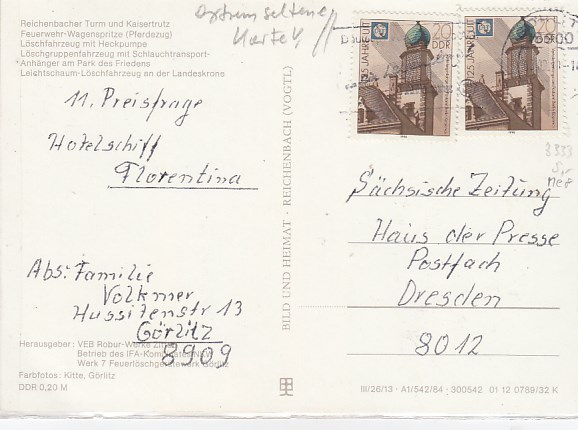 Reichenbacher Turm und Kaisertrutz
Feuerwehr-Wagenspritze (Pferdezug)
Löschfahrzeug mit Heckpumpe
Löschgruppenfahrzeug mit Schlauchtransport-
Anhänger am Park des Friedens
Leichtschaum-Löschfahrzeug an der Landeskrone
extrem seltene
Karte!!
125 JAHRE UIT
20
DDR
125 JAHRE UIT
20
8900
11. Preisfrage
Hotelschiff
Florentina
BILD UND HEIMAT · REICHENBACH (VOGTL)
Sächsische Zeitung
Haus der Presse
Postfach
Dresden
8012
Abs: Familie
Volkmer
Hussitenstr 13
Görlitz
8909
Herausgeber: VEB Robur-Werke Zittau
Betrieb des IFA-Kombinates NLV
Werk 7 Feuerlöschgerätewerk Görlitz
Farbfotos: Kitte, Görlitz
DDR 0,20 M
III/26/13 · A1/542/84 · 300542 01 12 0789/32 K